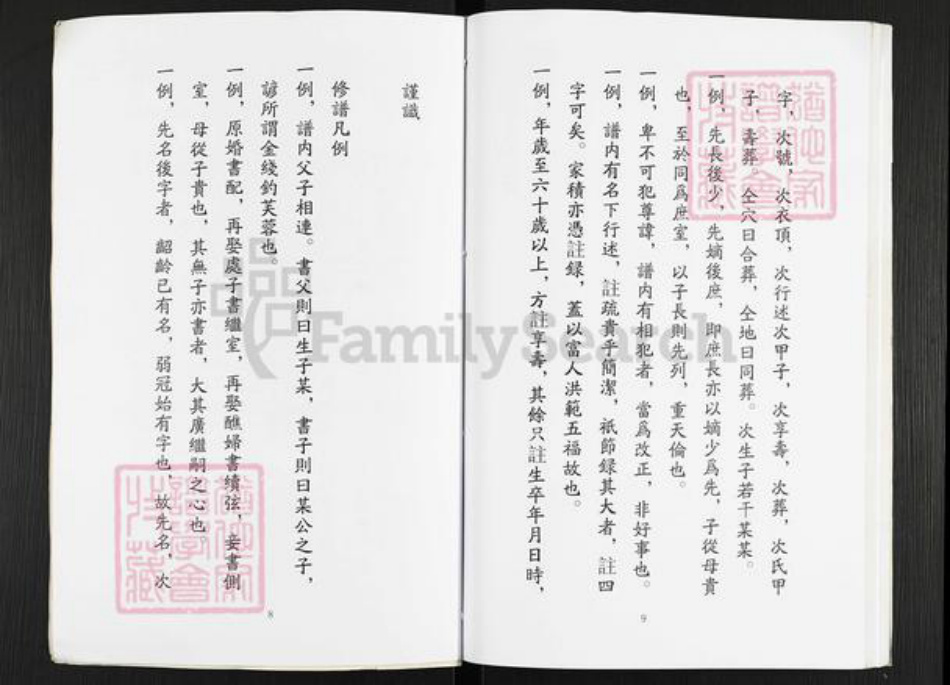 謹識
修譜凡例
一例，譜內父子相連。書父則曰生子某，書子則曰某公之子，
諺所謂金綫釣芙蓉也。
一例，原婚書配，再娶處子書繼室，再娶醮婦書續弦，妾書側
室，母從子貴也，其無子亦書者，大其廣繼嗣之心也。
一例，先名後字者，齠齡已有名，弱冠始有字也，故先名，次
8
字，次號，次衣頂，次行述次甲子，次享壽，次葬，次氏甲
子，壽葬。仝穴曰合葬，仝地曰同葬。次生子若干某某。
一例，先長後少，先嫡後庶，即庶長亦以嫡少爲先，子從母貴
也，至於同爲庶室，以子長則先列，重天倫也。
一例，卑不可犯尊諱，譜內有相犯者，當爲改正，非好事也。
一例，譜內有名下行述，註疏貴乎簡潔，祇節録其大者，註四
字可矣。家積亦憑註録，蓋以富人洪範五福故也。
一例，年歲至六十歲以上，方註享壽，其餘只註生卒年月日時，
9
FamilySearch